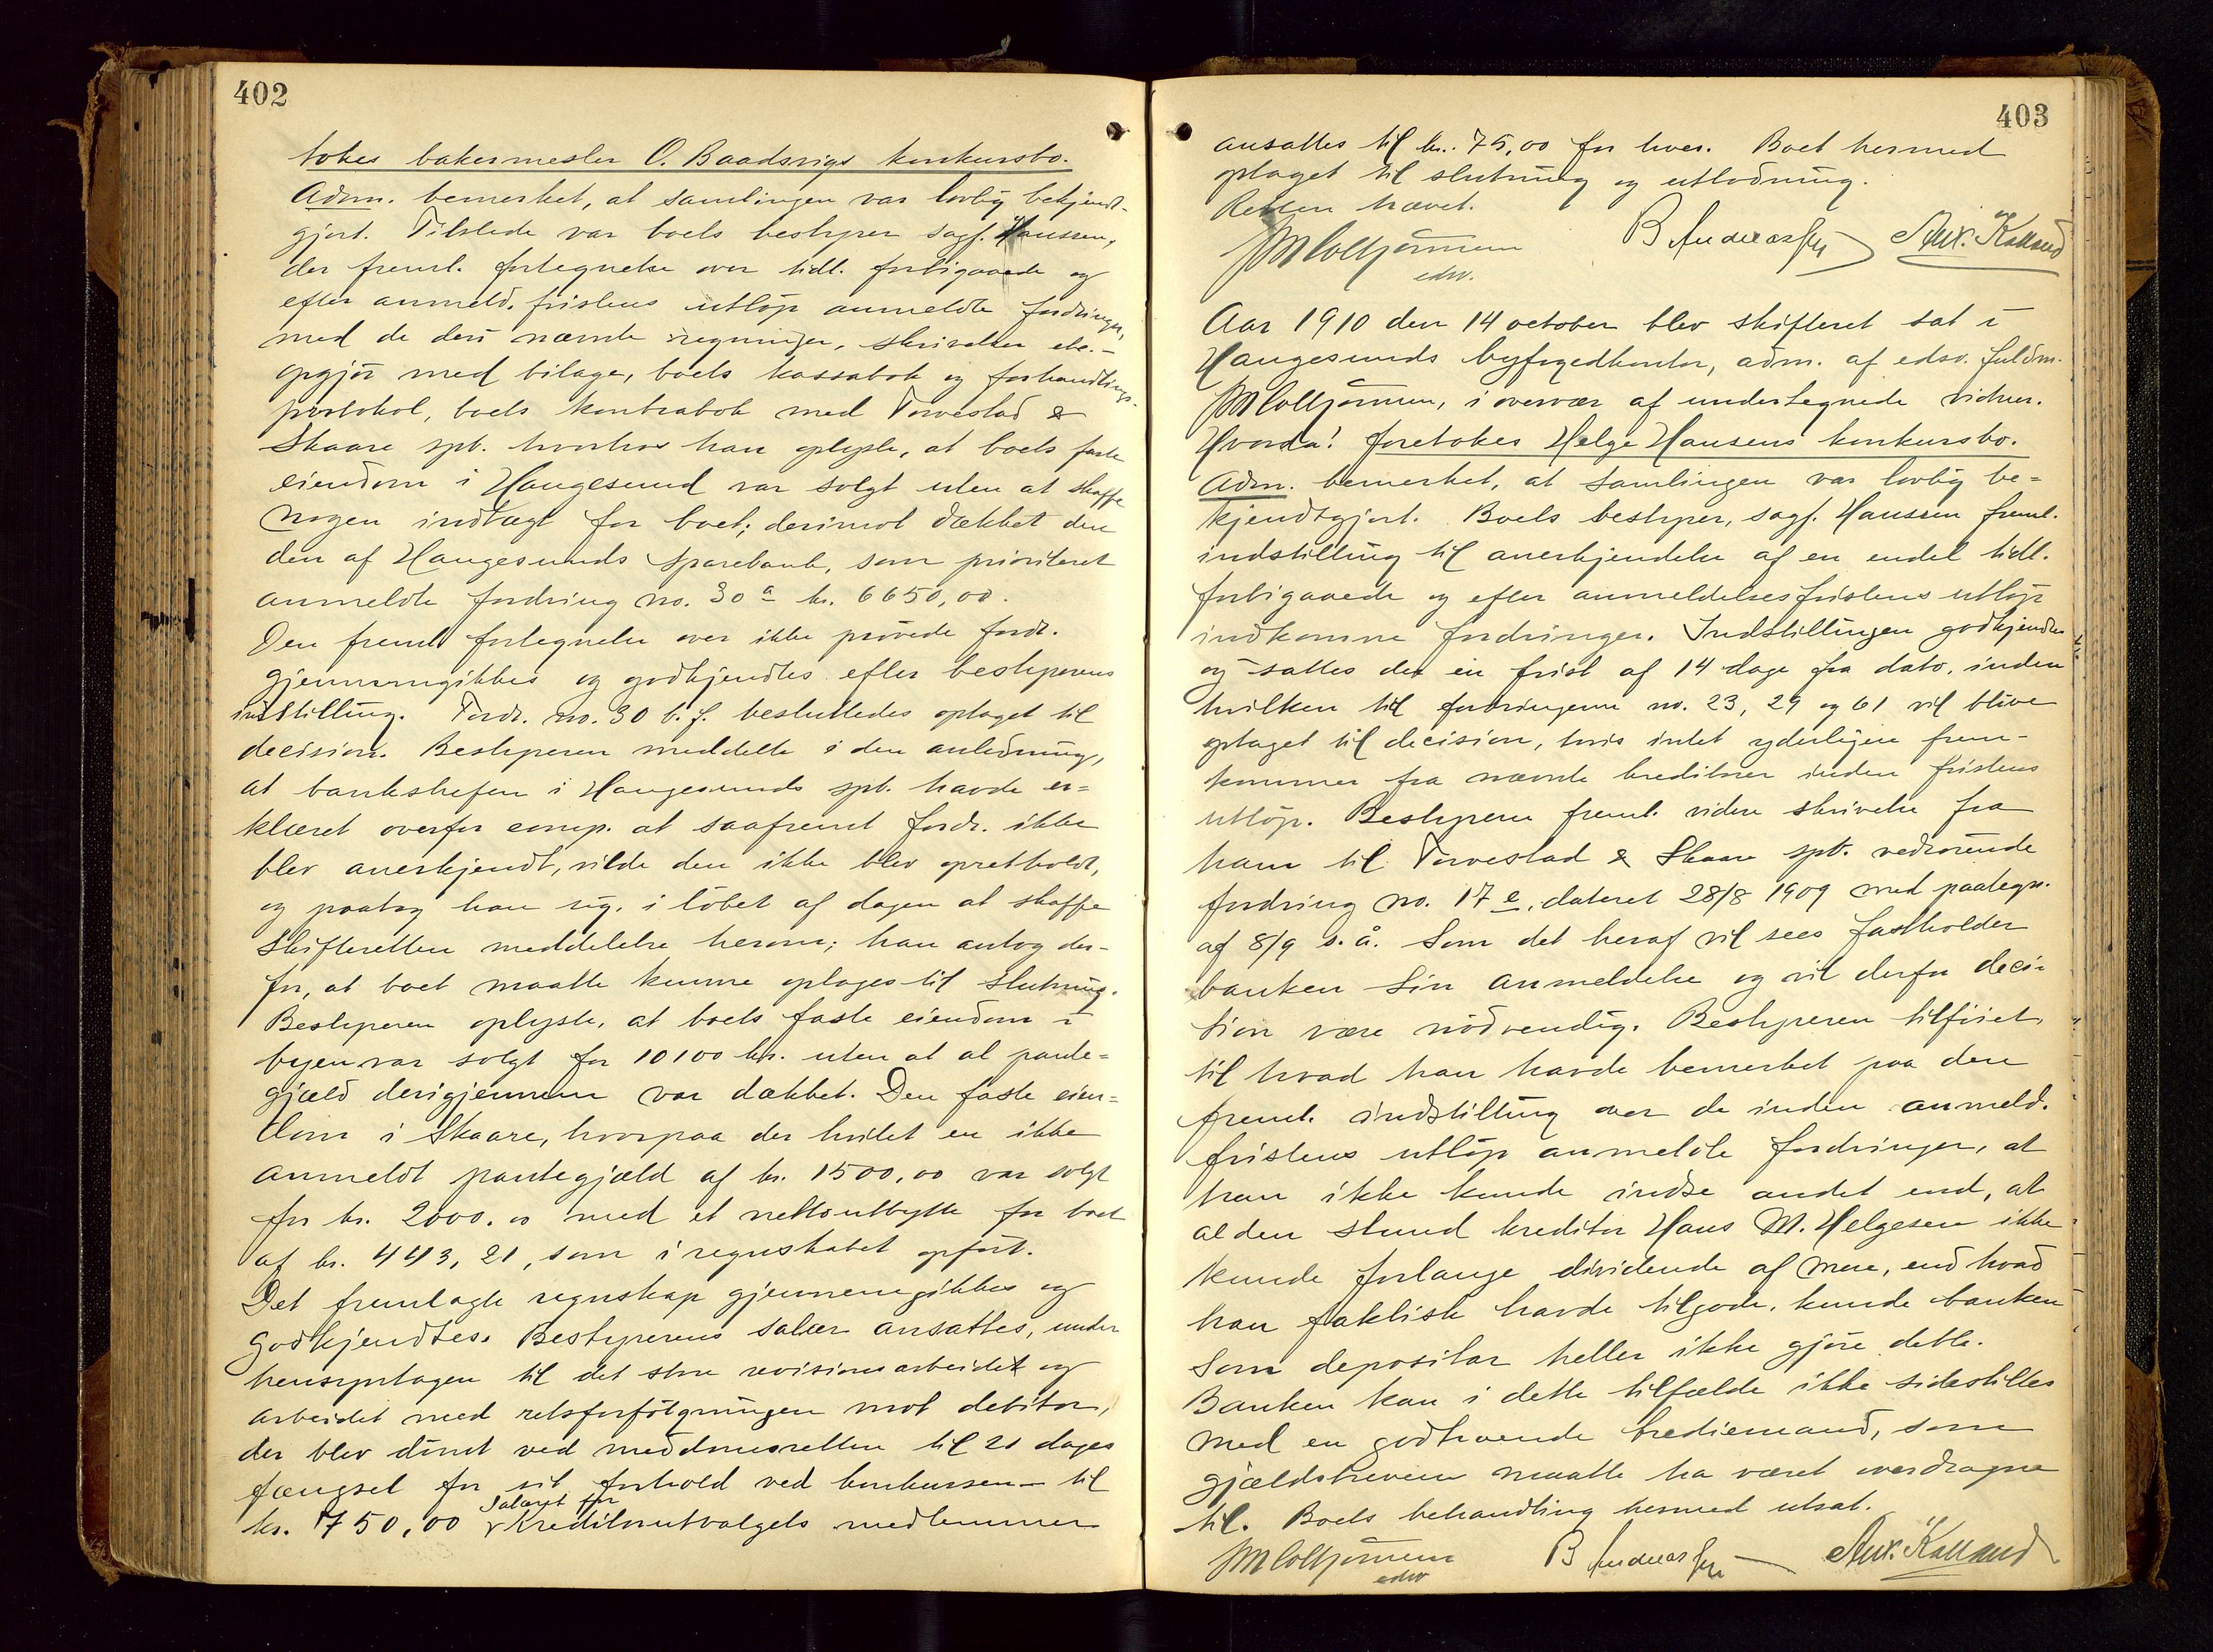 402
tokes bakermester O. Baadsvigs konkursbo.
Adm. bemerket, at samlingen var lovlig bekjendt-
gjort. Tilstede var boets bestyrer sagf. Haussen,
der freml. fortegnelse over tidl. forbigaaede og
efter anmeld. fristens utløp anmeldte fordringer,
med de deri nævnte regninger, skrivelser etc. -
opgjør med bilage, boets kassabok og forhandlings-
protokol, boets kontrabok med Torvestad &
Skaare spb. hvorhos han oplyste, at boets faste
eiendom i Haugesund var solgt uten at skaffe
nogen indtægt for boet; derimot dækket den
den af Haugesunds Sparebank, som prioritert
anmeldte fordring no. 30 a kr. 6650,00.
Den freml. fortegnelse over ikke prøvede fordr.
gjennemgikkes og godkjendtes efter bestyrerens
indstilling. Fordr. no. 30 b. f. besluttedes optaget til
decision. Bestyreren meddelte i den anledning,
at bankchefen i Haugesunds spb. havde er-
klæret overfor comp. at saafremt fordr. ikke
blev anerkjendt, vilde den ikke blev opretholdt,
og paatog han sig i løbet af dagen at skaffe
Skifteretten meddelelse herom; han antog der-
for, at boet maatte kunne optages til slutning.
Bestyreren oplyste, at boets faste eiendom i
byen var solgt for 10100 kr. uten at al pante-
gjæld derigjennem var dækket. Den faste eien-
dom i Skaare, hvorpaa der hvilet en ikke
anmeldt pantegjæld af kr. 1500,00 var solgt
for kr. 2000.00 med et nettoutbytte for boet
af kr. 443,21, som i regnskabet opført.
Det fremlagte regnskap gjennemgikkes og
godkjendtes. Bestyrerens salær ansattes, under
hensyntagen til det store revisionsarbeidet og
arbeidet med retsforfølgningen mot debitor,
der blev dømt ved meddomsretten til 21 dages
fængsel for sit forhold ved konkursen - til
kr. 750,00 Salæret for Kreditorutvalgets medlemmer
403
ansattes til kr. 75,00 for hver. Boet hermed
optaget til slutning og utlodning.
Retten hævet.
edsv.
B Andreassen Ank. Kalland
Aar 1910 den 14 october blev skifteret sat i
Haugesunds byfogedkontor, adm. af edsv. fuldm.
i overvær af undertegnede vidner.
Hvorda! foretokes Helge Hansens konkursbo.
Adm. bemerket, at samlingen var lovlig be-
kjendtgjort. Boets bestyrer, sagf. Haussen freml.
indstilling til anerkjendelse af en endel tidl.
forbigaaede og efter anmeldelsesfristens utløp
indkomne fordringer. Indstillingen godkjendtes
og sattes der en frist af 14 dage fra dato, inden
hvilken tid fordringerne no. 23, 29 og 61 vil blive
optaget til decision, hvis intet yderligere frem-
kommer fra nævnte kreditorer inden fristens
utløp. Bestyreren freml. videre skrivelse fra
ham til Torvestad & Skaare spb. vedrørende
fordring no. 17 e, dateret 28/8 1909 med paategn.
af 8/9 s. å. Som det heraf vil sees fastholder
banken sin anmeldelse og vil derfor deci-
tion være nødvendig. Bestyreren tilføiet,
til hvad han havde bemerket paa den
freml. indstilling over de inden anmeld.
fristens utløp anmeldte fordringer, at
han ikke kunde indse andet end, at
alden stund kreditor Hans M. Helgesen ikke
kunde forlange dividende af mere, end hvad
han faktisk havde tilgode, kunde banken
som depositar heller ikke gjøre dette.
Banken kan i dette tilfælde ikke sidestilles
med en godtroende trediemand, som
gjældsbreven maatte ha været overdragne
til. Boets behandling hermed utsat.
edsv
B Andreassen Ank. Kalland